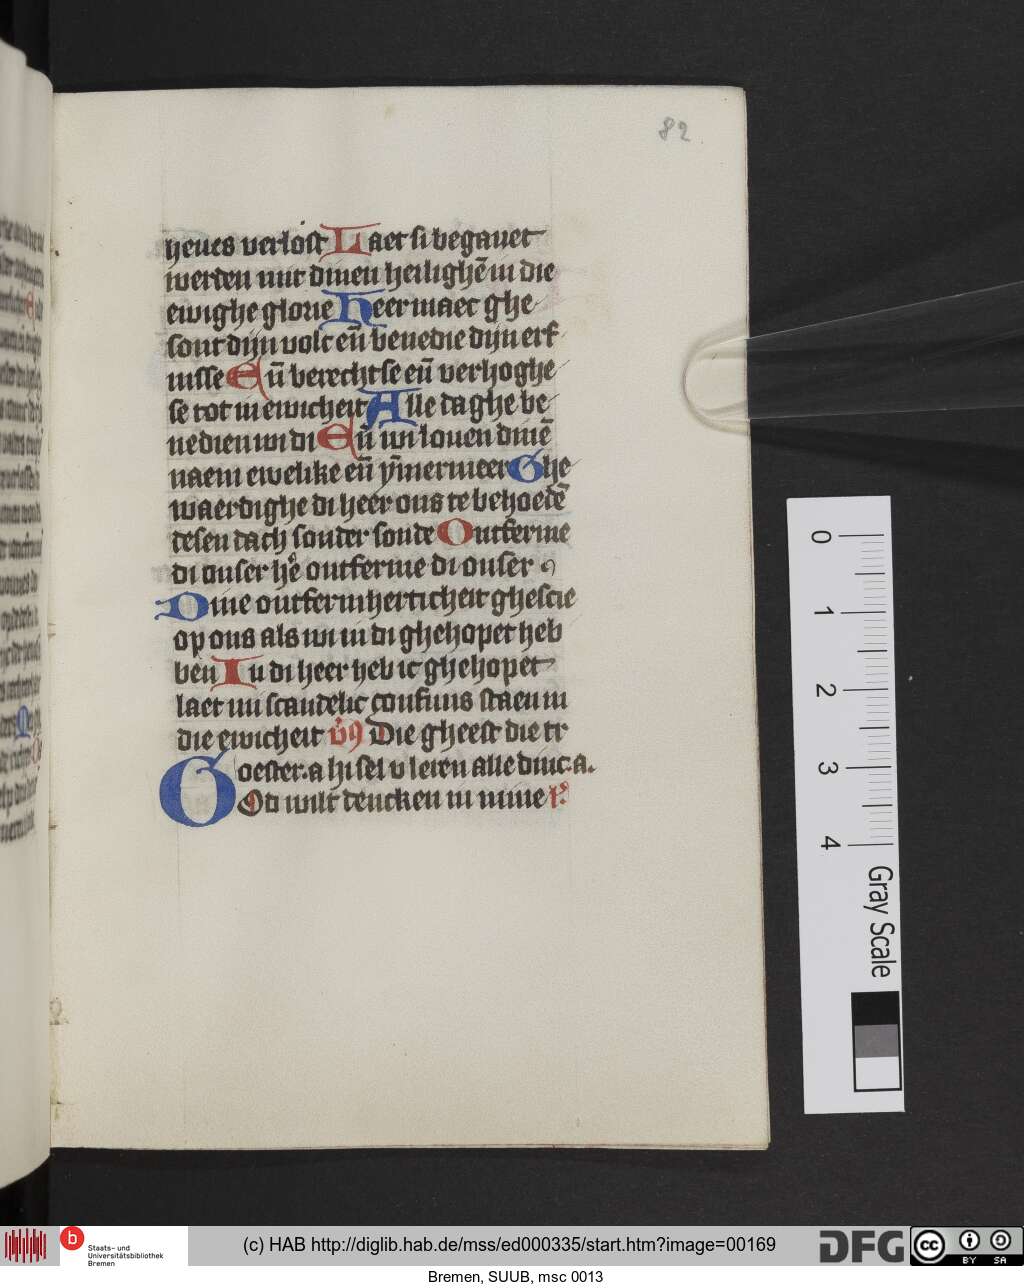 82
heues verlost Laet si begauet
werden mit dinen heilighē in die
ewighe glorie Heer maec ghe
sont dijn volc eñ benedie dijn erf
nisse Eñ berechtse eñ verhoghe
se tot in ewicheit Alle daghe be
nedien wi di Eñ wi louen dinē
naem ewelike eñ ȳmermeer Ghe
waerdighe di heer ons te behoedē
desen dach sonder sonde Ontferme
di onser hēr ontferme di onser
Dine ontfermherticheit ghescie
op ons als wi in di ghehopet heb
ben In di heer heb ic ghehopet
laet mi scandelic confuus staen in
die ewicheit Die gheest die tr
oester.a hi sel v leren alle dinc.a.
God wilt dencken in mine
0
1
2
3
4
Gray Scale
b
Staats- und
Universitätsbibliothek
Bremen
(c) HAB http://diglib.hab.de/mss/ed000335/start.htm?image=00169
DFG
cc
BY SA
Bremen, SUUB, msc 0013